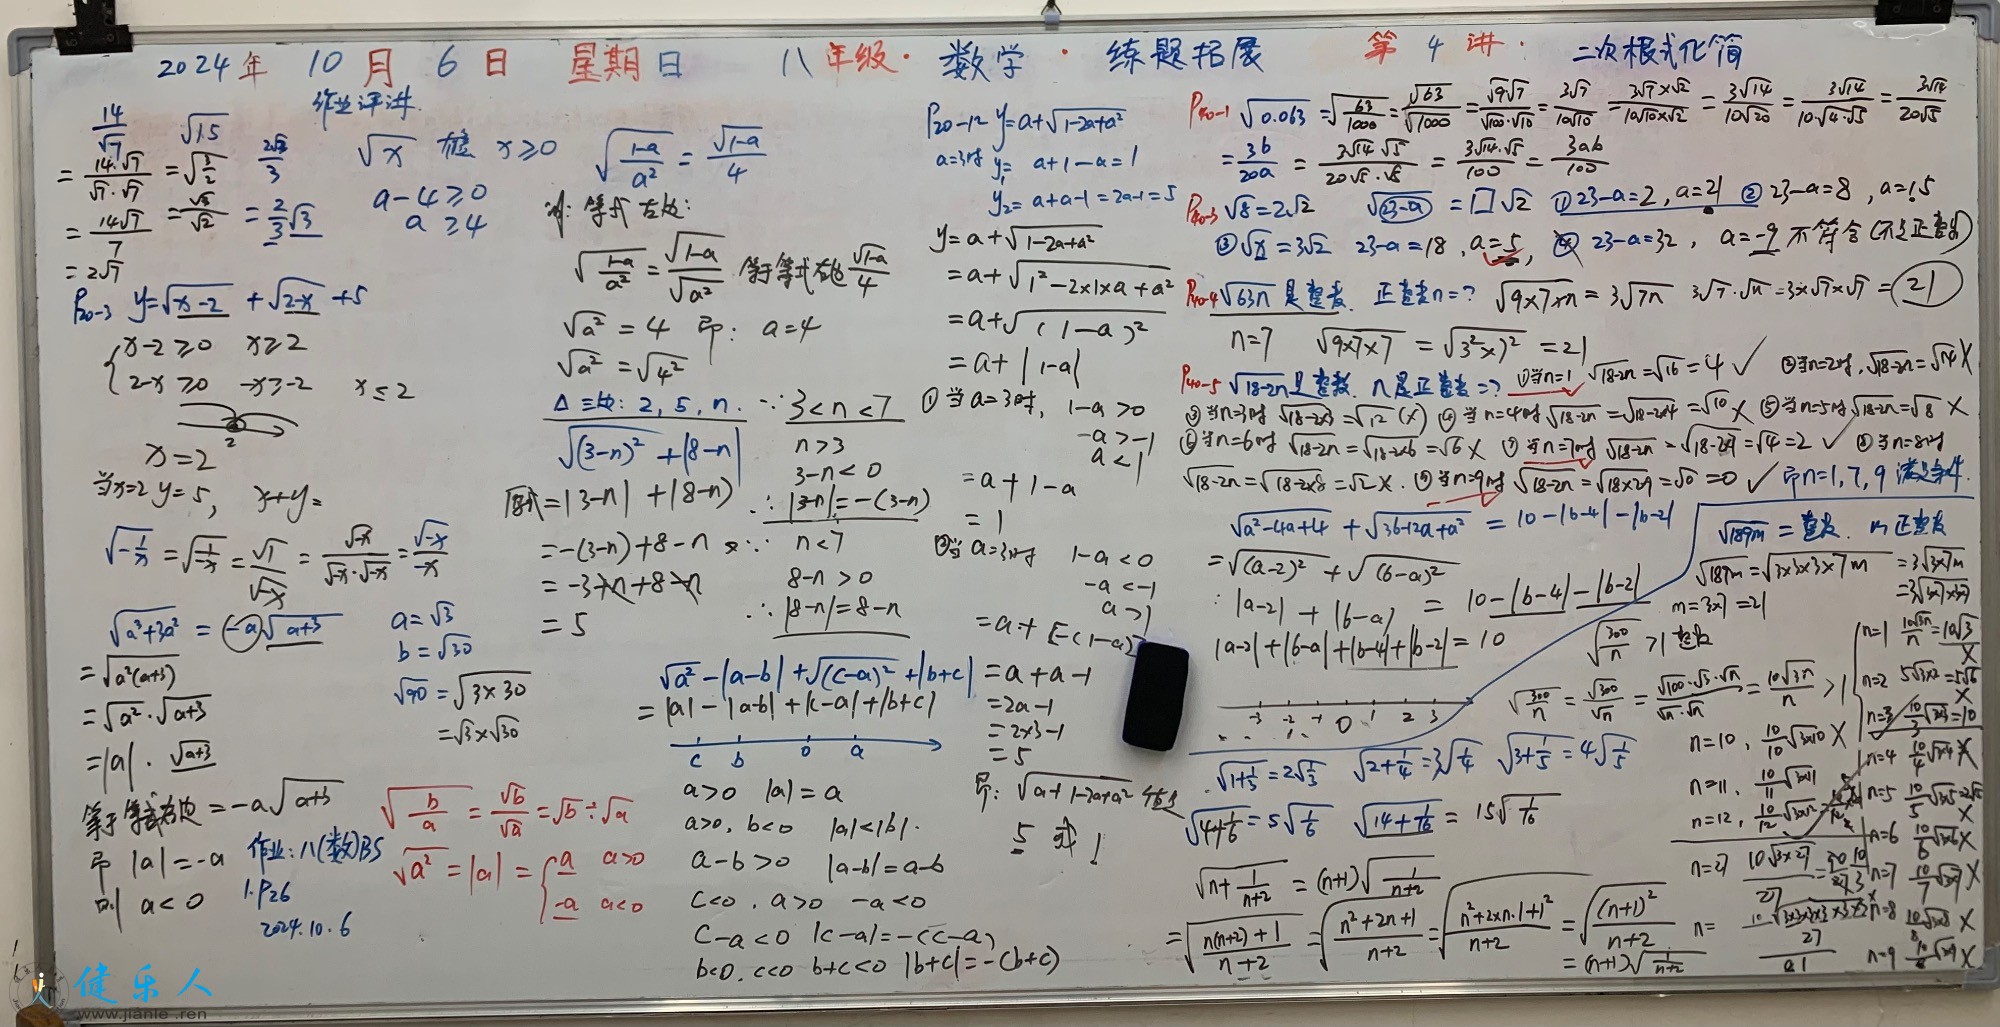 2024年 10月 6日 星期日 八年级·数学·练题拓展 第4讲: 二次根式化简
作业评讲
14/√7
= 14·√7/√7·√7
= 14√7/7
= 2√7
√1.5
= √(3/2)
= √3/√2
2√3/3
= 2/3 √3
√x x≥0
a-4≥0
a≥4
P20-3 y=√(x-2) + √(2-x) +5
x-2≥0 x≥2
2-x≥0 -x≥-2 x≤2
2
x=2
当x=2 y=5, x+y=
√(-1/x) = √(1/-x) = √1/√-x = √-x/√-x·√-x = √-x/-x
√(a³+3a²) = (-a)√(a+3)
=√(a²(a+3))
=√a²·√(a+3)
=|a|·√(a+3)
等于等式右边=-a√(a+3)
即 |a|=-a
则 a<0
a=√3
b=√30
√90=√(3×30)
=√3×√30
作业:八(数)BS
1.P26
2024.10.6
√(b/a) = √b/√a = √b÷√a
√a²=|a|= a a>0
-a a<0
√((1-a)/a²) = √(1-a)/4
解: 等式左边:
√((1-a)/a²) = √(1-a)/√a² 等于等式右边 √(1-a)/4
√a² = 4 即: a=4
√a² = √4²
△三边: 2, 5, n. ∵ 3<n<7
√(3-n)² + |8-n|
原式=|3-n| + |8-n|
=-(3-n)+8-n
=-3+n+8-n
=5
n>3
3-n<0
∴ |3-n|=-(3-n)
∵ n<7
8-n>0
∴ |8-n|=8-n
√a²-|a-b|+√(c-a)²+|b+c|
=|a|-|a-b|+|c-a|+|b+c|
c b 0 a
a>0 |a|=a
a>0, b<0 |a|<|b|.
a-b>0 |a-b|=a-b
c<0, a>0 -a<0
c-a<0 |c-a|=-(c-a)
b<0, c<0 b+c<0 |b+c|=-(b+c)
P20-12 y=a+√(1-2a+a²)
a=3时 y₁= a+1-a=1
y₂=a+a-1=2a-1=5
y=a+√(1-2a+a²)
=a+√(1²-2×1×a+a²)
=a+√(1-a)²
=a+|1-a|
①当a=3时, 1-a>0
-a>-1
a<1
=a+1-a
=1
②当a=3时 1-a<0
-a<-1
a>1
=a+[-(1-a)]
=a+a-1
=2a-1
=2×3-1
=5
即: √(a+1-2a+a²)
5 或 1
P40-1 √0.063=√(63/1000)=√63/√1000=√9√7/√100·√10=3√7/10√10=3√7×√2/10√10×√2=3√14/10√20=3√14/10·√4·√5=3√14/20√5
=3b/20a = 3√14·√5/20√5·√5 = 3√14·√5/100 = 3ab/100
P40-3 √8=2√2 √(23-a) =□√2 ①23-a=2, a=21 ②23-a=8, a=15
③√x=3√2 23-a=18, a=5, ④ 23-a=32, a=-9 不符合(不是正整数)
P40-4 √63n 是整数. 正整数n=? √(9×7×n)=3√7n 3√7·√n=3×√7×√7=21
n=7 √(9×7×7) =√(3²×7²) =21
P40-5 √(18-2n)是整数. n是正整数=? ①当n=1 √(18-2n)=√16=4 ✓ ②当n=2时, √(18-2n)=√14 X
③当n=3时 √(18-2×3)=√12 (X) ④当n=4时 √(18-2n)=√(18-2×4)=√10 X ⑤当n=5时 √(18-2n)=√8 X
⑥当n=6时 √(18-2n)=√(18-2×6)=√6 X ⑦当n=7时 √(18-2n)=√(18-2×7)=√4=2 ✓ ⑧当n=8时
√(18-2n)=√(18-2×8)=√2 X. ⑨当n=9时 √(18-2n)=√(18×2×9)=√0=0 ✓ 即n=1,7,9 满足条件.
√(a²-4a+4) + √(36-12a+a²) = 10-|b-4|-|b-2|
=√(a-2)² + √(6-a)²
∵ |a-2| + |6-a| = 10-|b-4|-|b-2|
|a-2|+|6-a|+|b-4|+|b-2|=10
-3 -2 -1 0 1 2 3
√(1+1/3)=2√(1/3) √(2+1/4)=3√(1/4) √(3+1/5)=4√(1/5)
√(4+1/6)=5√(1/6) √(14+1/16)=15√(1/16)
√(n+1/(n+2)) =(n+1)√(1/(n+2))
=√((n(n+2)+1)/(n+2)) =√((n²+2n+1)/(n+2)) =√((n²+2×n·1+1²)/(n+2)) =√((n+1)²/(n+2))
=(n+1)√(1/(n+2))
√189m=整数. m正整数
√189m=√(3×3×3×7m) =3√(3×7m)
=3√(3×7×3×7)
m=3×7=21
√(300/n) >1 整数
√(300/n)=√300/√n=√100·√3·√n/√n·√n=10√3n/n>1
n=1 10√3n/n=10√3 X
n=2 5√(3×2)=5√6 X
n=3 10/3√(3×3)=10
n=4 10/4√(3×4) X
n=5 10/5√(3×5)=2√15 X
n=6 10/6√(3×6) X
n=7 10/7√(3×7) X
n=8 10/8√(3×8) X
n=9 √(3×9) X
n=10, 10/10√(3×10) X
n=11, 10/11√(3×11)
n=12, 10/12√(3×12)
n=27 10√(3×27)/27
n=
健乐人
www.jianle.ren